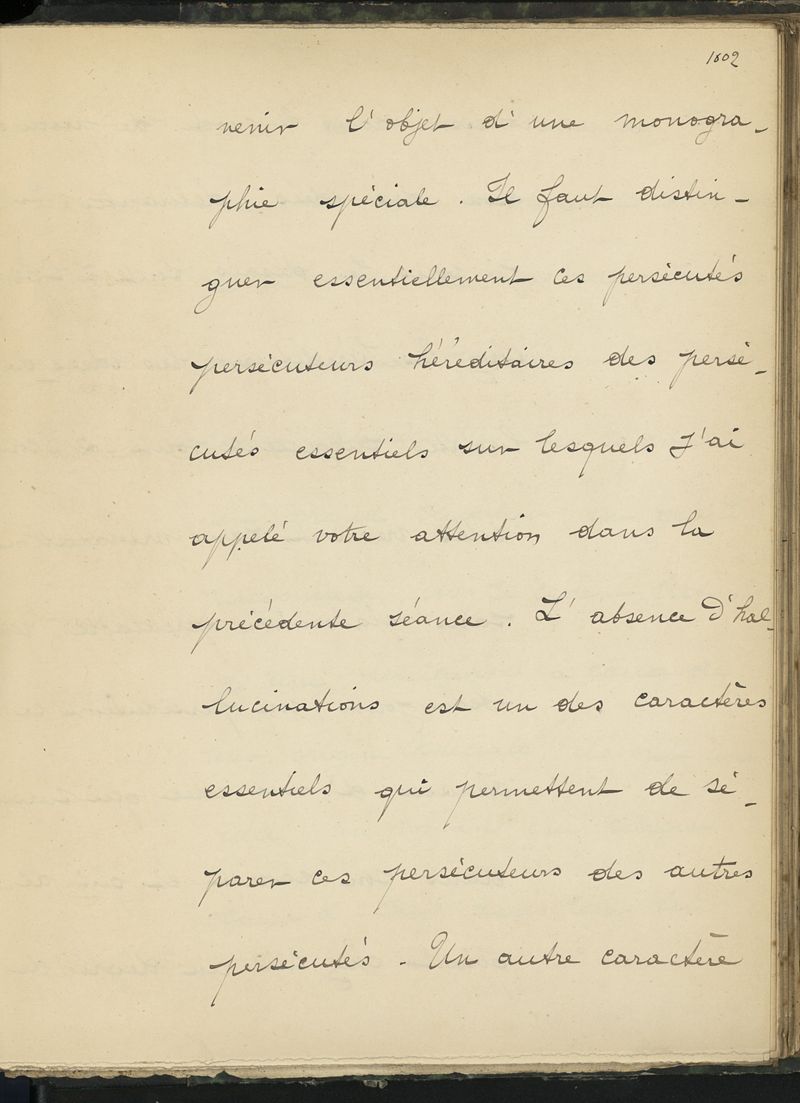 1602
venir l'objet d'une monogra-
phie spéciale. Il faut distin-
guer essentiellement ces persécutés
persécuteurs héréditaires des persé-
cutés essentiels sur lesquels j'ai
appelé votre attention dans la
précédente séance. L'absence d'hal-
lucinations est un des caractères
essentiels qui permettent de sé-
parer ces persécuteurs des autres
persécutés. Un autre caractère